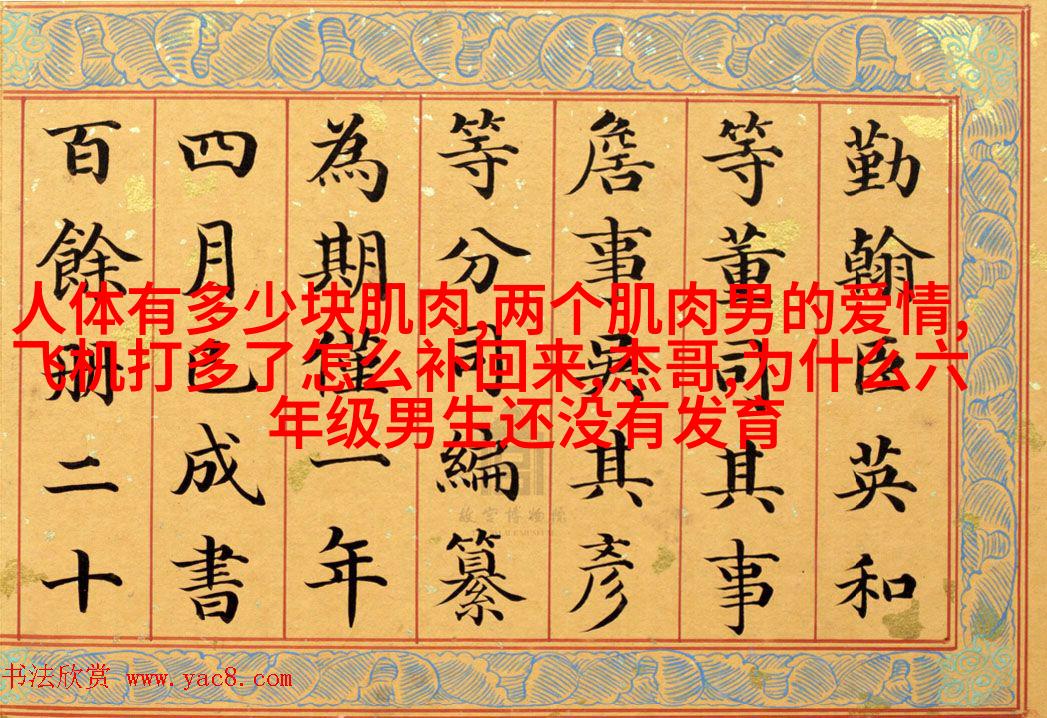 勤翰臣英和
等董司其事
詹事吳其彥
等分同編纂
為期僅一年
四月已成書
百餘冊二十
人体有多少块肌肉,两个肌肉男的爱情,
飞机打多了怎么补回来,杰哥,为什么六
年级男生还没有发育
故宫博物院
书法欣赏 www.yac8.com